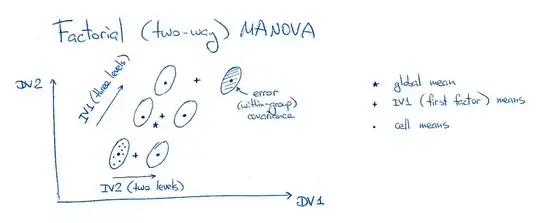 Factorial (two-way) MANOVA
DV2
IV1 (three levels)
error
(within-group)
covariance
* global mean
+ IV1 (first factor) means
· cell means
IV2 (two levels)
DV1